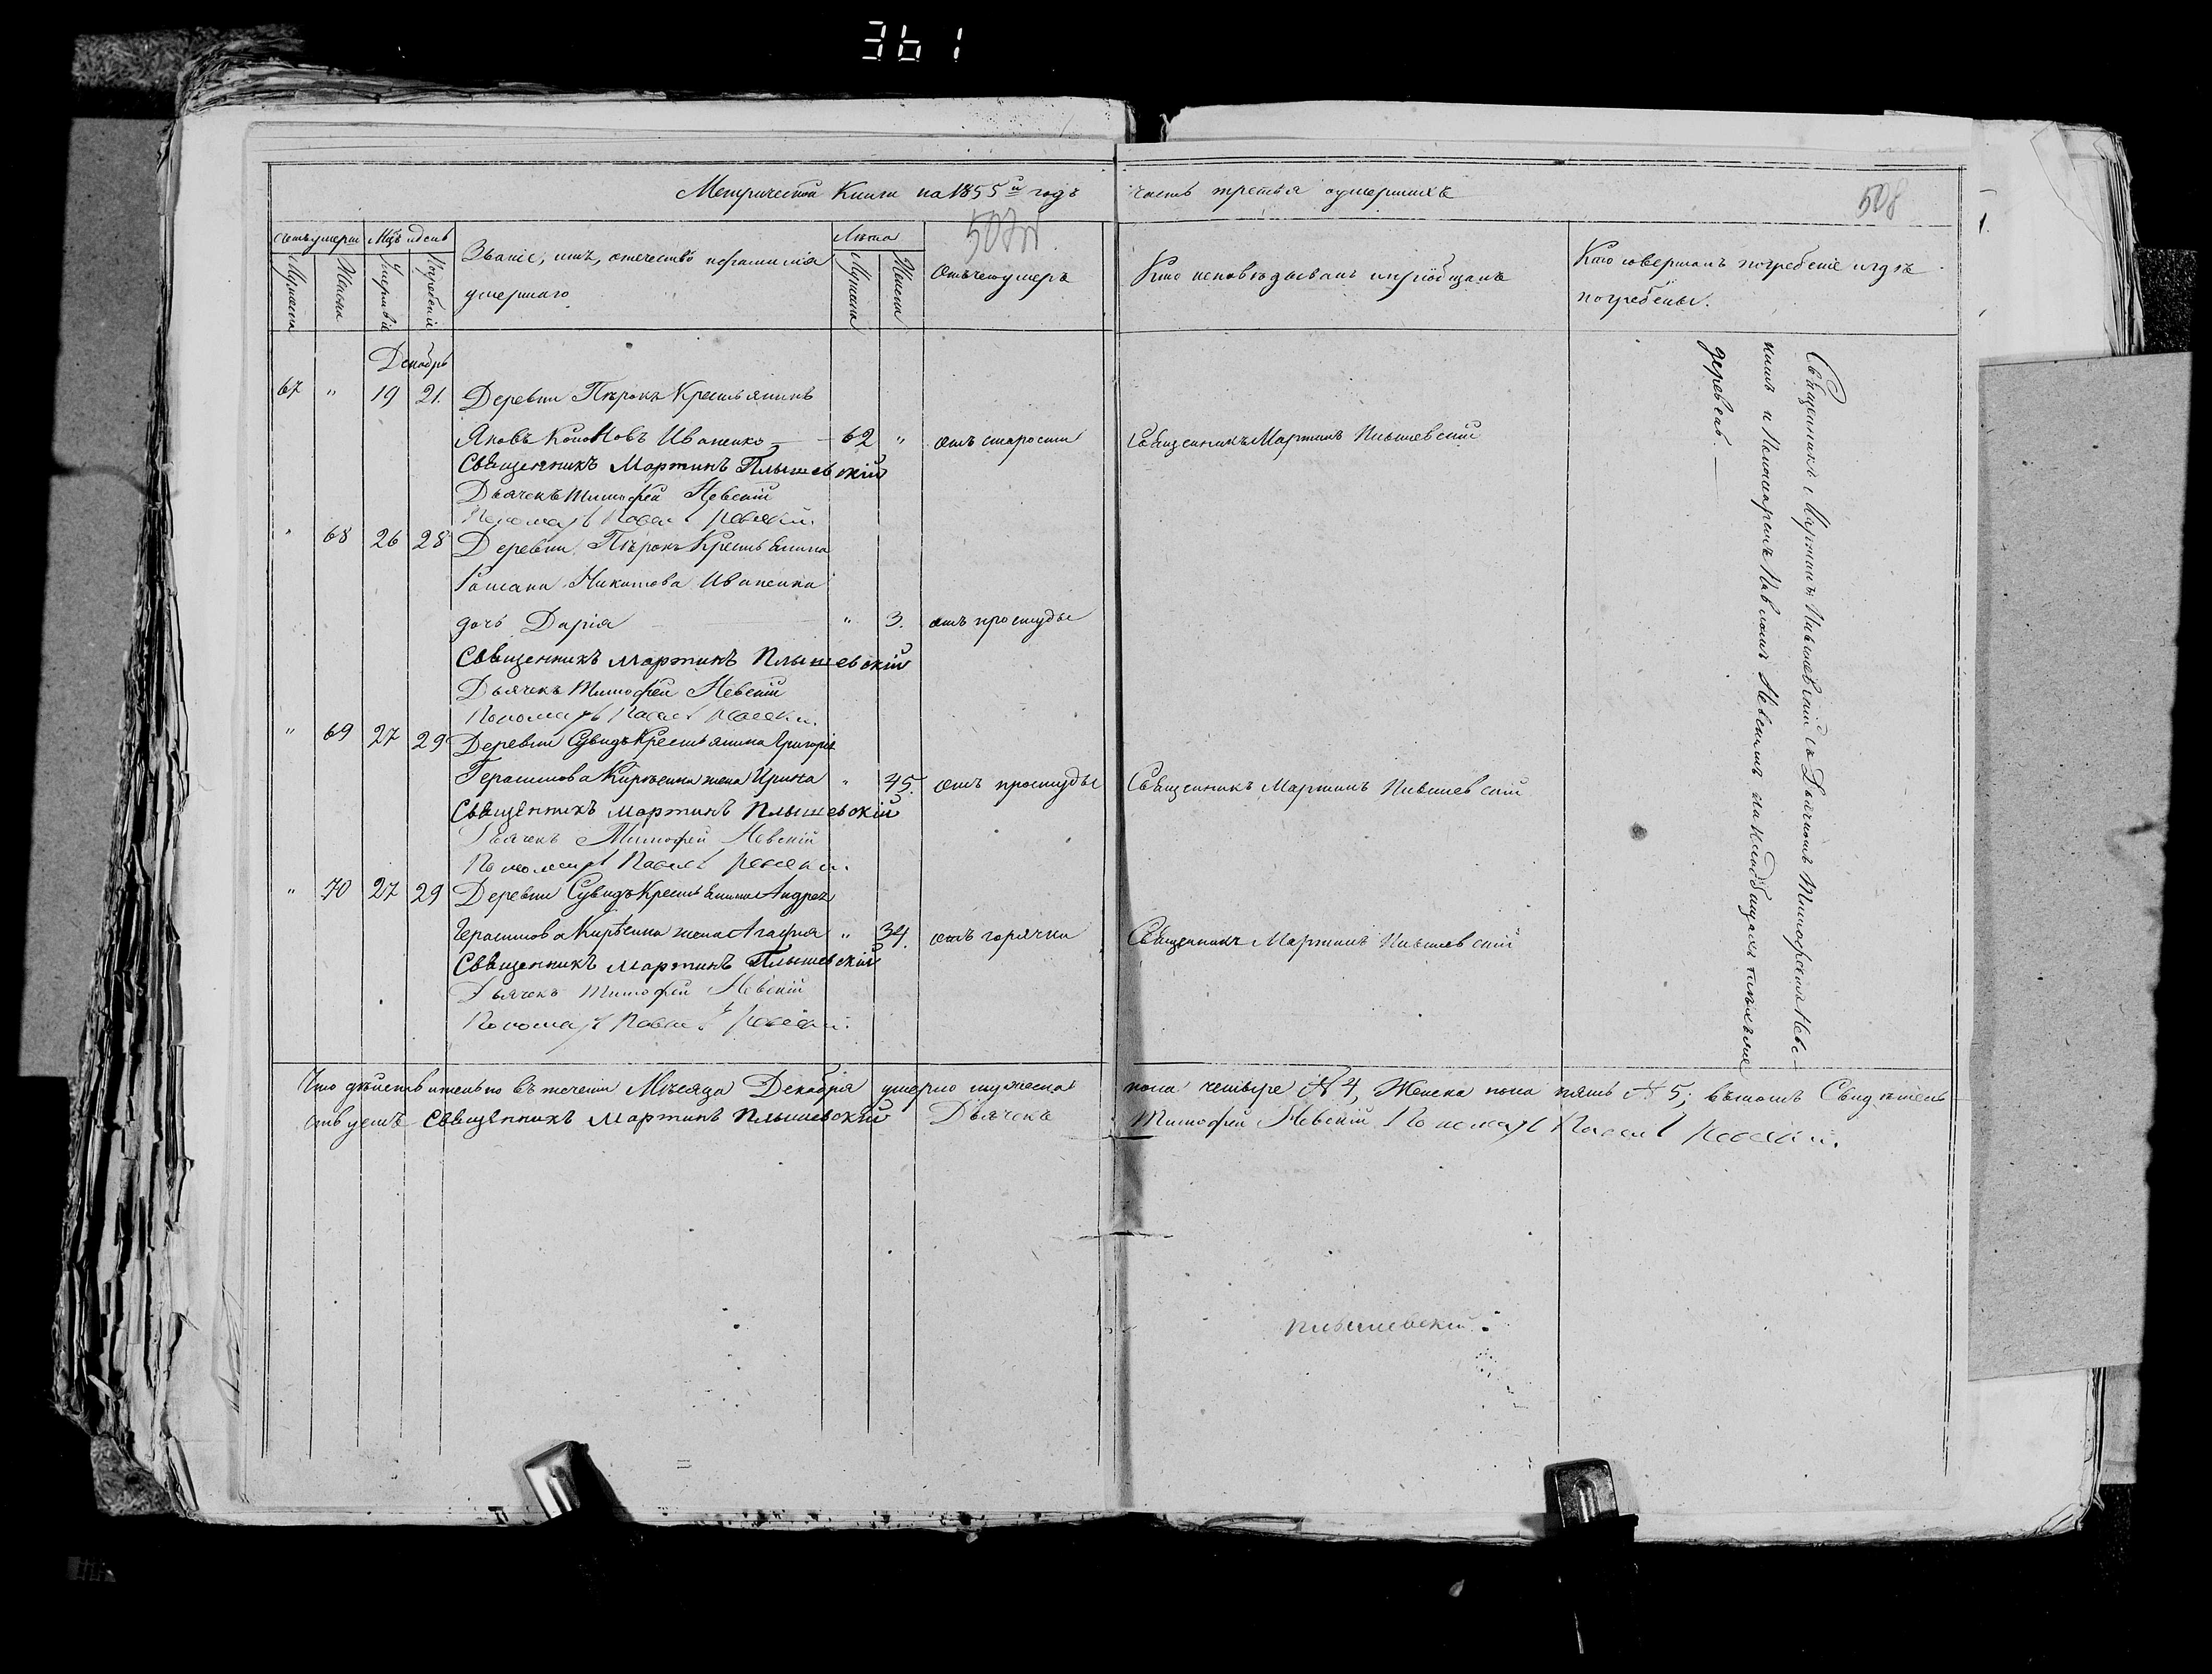 361
Метрической Книги на 1855й годъ часть третья оумершихъ
508
507
Счетъ умерш Мцъ и день
Званіе, имя, отечество и фамилія
умершаго
Лѣта
Отъ чего умеръ
Кто исповѣдывалъ и пріобщалъ
Кто совершалъ погребеніе и гдѣ
погребены.
Мужеска
Женска
Смерти
Погребенія
Мужска
Женска
Декабрь
67 " 19 21. Деревни Пѣрокъ Крестьянинъ
Яковъ Иваненко — 62 " отъ старости Священникъ Мартинъ Плышевскій
Священникъ Мартинъ Плышевскій
Дьячекъ Тимофей Невскій
Пономарь Павелъ Невскій.
" 68 26 28 Деревни Пѣрокъ Крестьянина
Никитова Иваненка
дочь Дарія " 3. отъ простуды
Священникъ Мартинъ Плышевскій
Дьячекъ Тимофей Невскій
Пономарь Павелъ Невскій.
" 69 27 29 Деревни Сувидъ Крестьянина Григорія
Герасимова Кирѣенка жена Ирина " 45. отъ простуды Священникъ Мартинъ Плышевскій
Священникъ Мартинъ Плышевскій
Дьячекъ Тимофей Невскій
Пономарь Павелъ Невскій.
" 70 27 29 Деревни Сувидъ Крестьянина Андрея
Герасимова Кирѣенка жена Агафія " 34. отъ горячки Священникъ Мартинъ Плышевскій
Священникъ Мартинъ Плышевскій
Дьячекъ Тимофей Невскій
Пономарь Павелъ Невскій.
Священникъ Мартинъ Плышевскій съ Дьячкомъ Тимофеемъ Невс-
кимъ и Пономаремъ Павломъ Невскимъ на кладбищахъ
деревень —
Что дѣйствительно въ теченіи Мѣсяца Декабря умерло мужеска пола четыре № 4, Женска пола пять № 5; въ томъ Свидѣтель-
ствуемъ Священникъ Мартинъ Плышевскій Дьячекъ Тимофей Невскій Пономарь Павелъ Невскій.
Плышевскій.